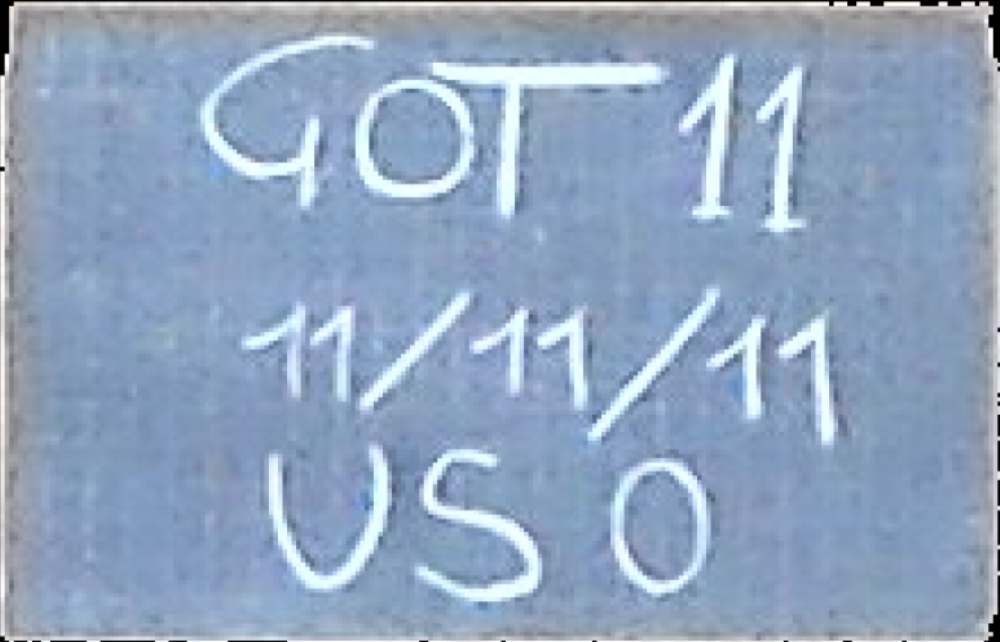 GOT 11
11/11/11
USO